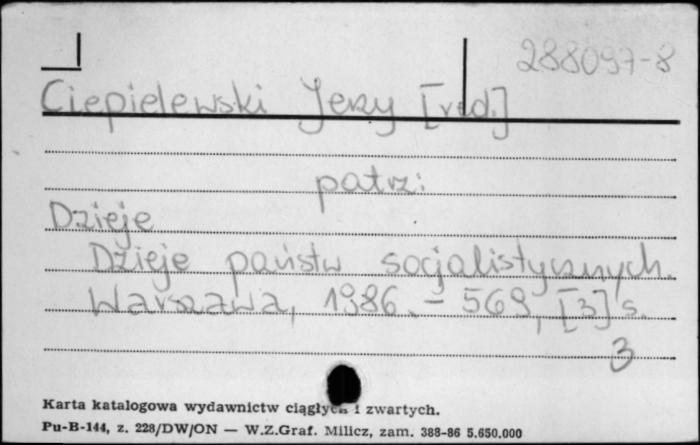 288097-8
Ciepielewski Jerzy [red.]
patrz:
Dzieje
Dzieje państw socjalistycznych.
Warszawa, 1986. – 569, [3] s.
3
Karta katalogowa wydawnictw ciągłych i zwartych.
Pu-B-144, z. 228/DW/ON — W.Z.Graf. Milicz, zam. 388-86 5.650.000